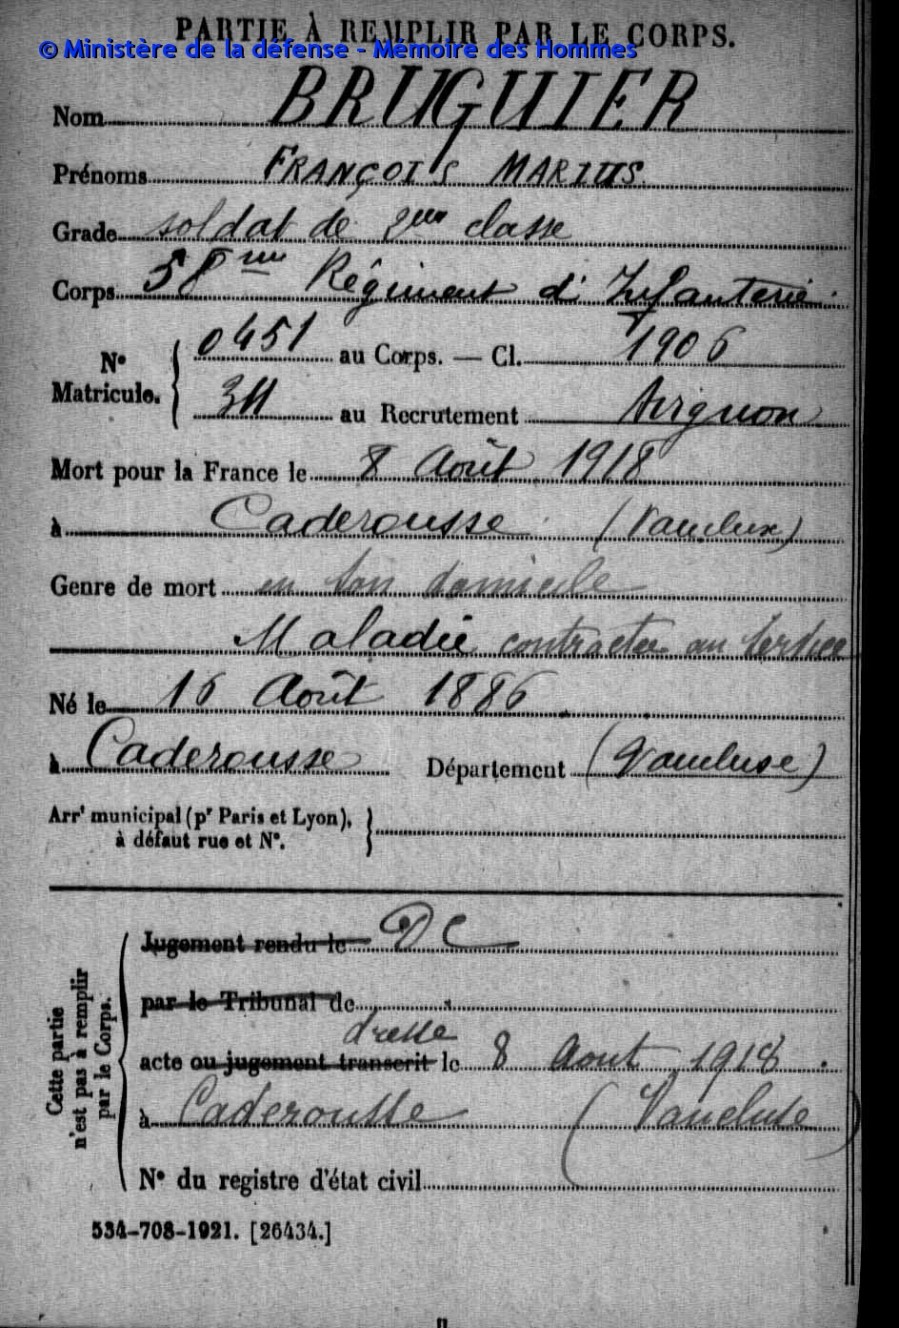 PARTIE À REMPLIR PAR LE CORPS.
© Ministère de la défense - Mémoire des Hommes
Nom BRUGUIER
Prénoms FRANÇOIS MARIUS
Grade soldat de 2me classe
Corps 58me Régiment d'Infanterie
N° Matricule. { 0451 au Corps. — Cl. 1906
311 au Recrutement Avignon
Mort pour la France le 8 Août 1918
à Caderousse (Vaucluse)
Genre de mort en son domicile
Maladie contractée au service
Né le 16 Août 1886
à Caderousse Département (Vaucluse)
Arrt municipal (pr Paris et Lyon), }
à défaut rue et N°.
Cette partie n'est pas à remplir par le Corps.
Jugement rendu le DC
par le Tribunal de
dresse
acte ou jugement transcrit le 8 Aout 1918.
à Caderousse (Vaucluse)
N° du registre d'état civil
534-708-1921. [26434.]